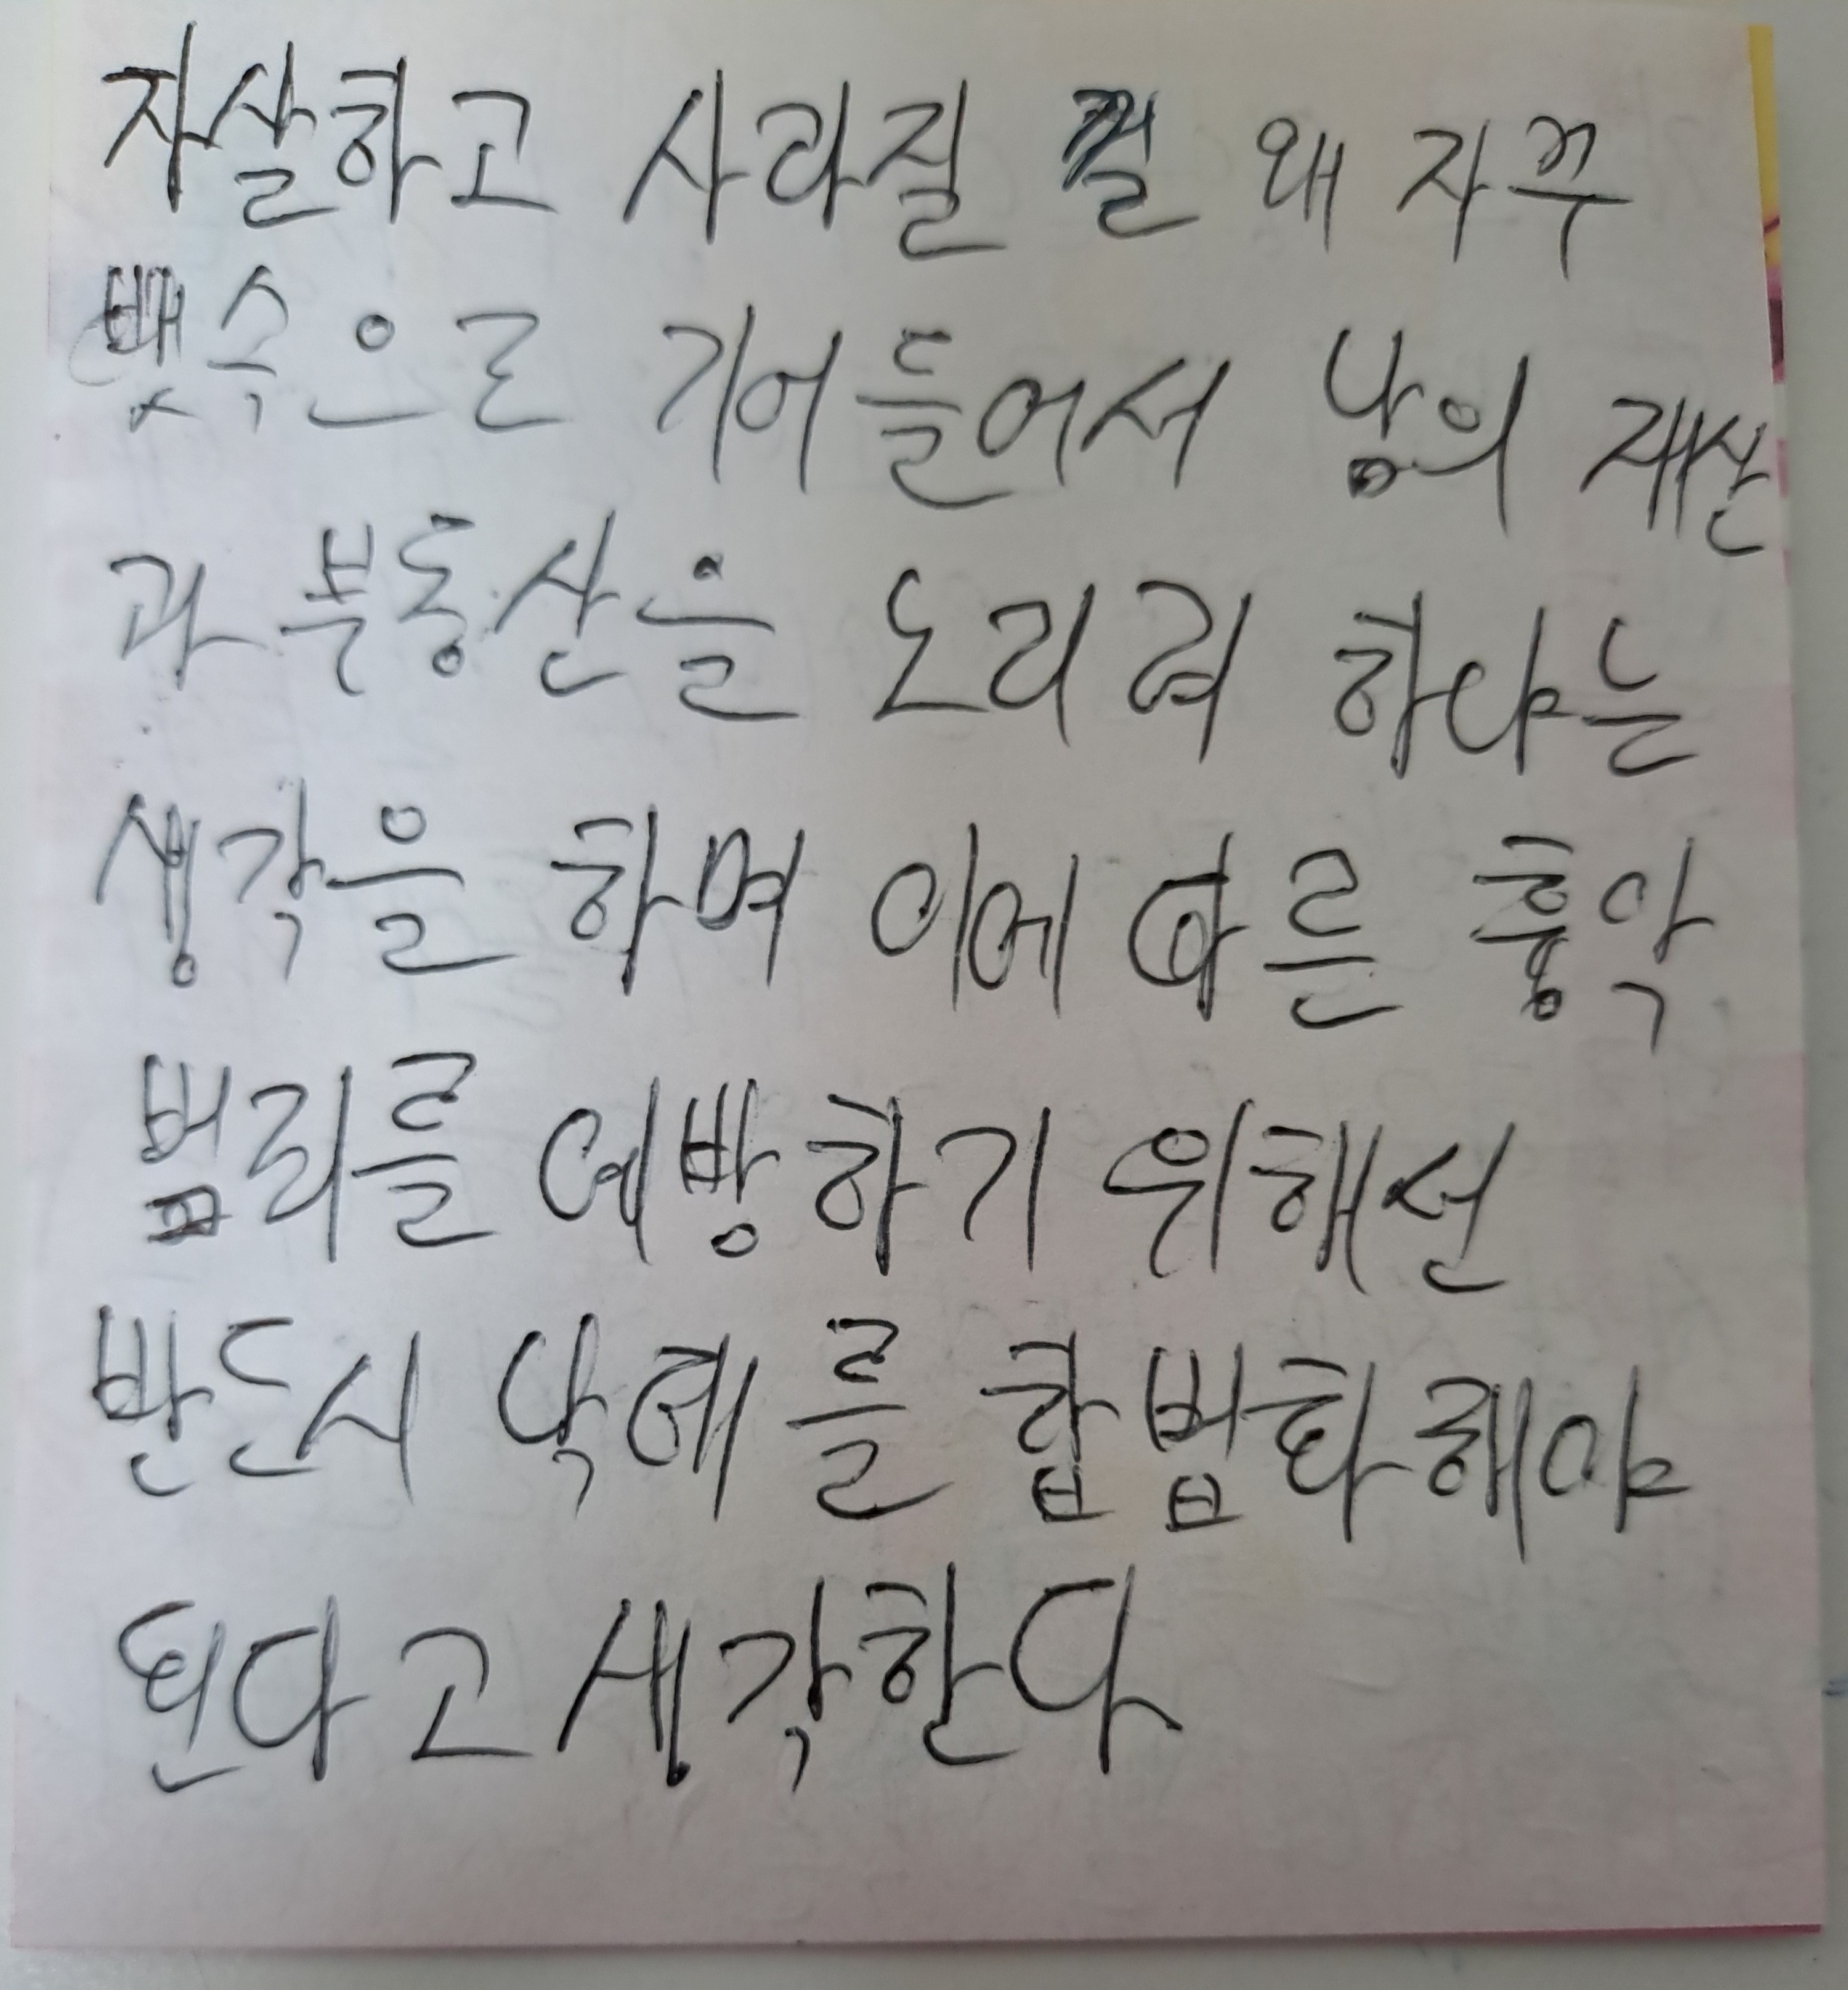 자살하고 사라질 껄 왜 자꾸
뱃속으로 기어들어서 남의 재산
과 부동산을 노리려 하냐는
생각을 하며 이에 따른 흉악
범죄를 예방하기 위해선
반드시 낙태를 합법화해야
된다고 생각한다